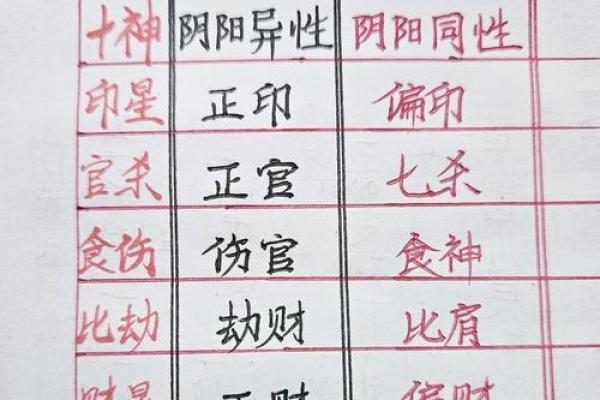 十神 阴阳异性 阴阳同性
印星 正印 偏印
官杀 正官 七杀
食伤 伤官 食神
比劫 劫财 比肩
财星 正财 偏财